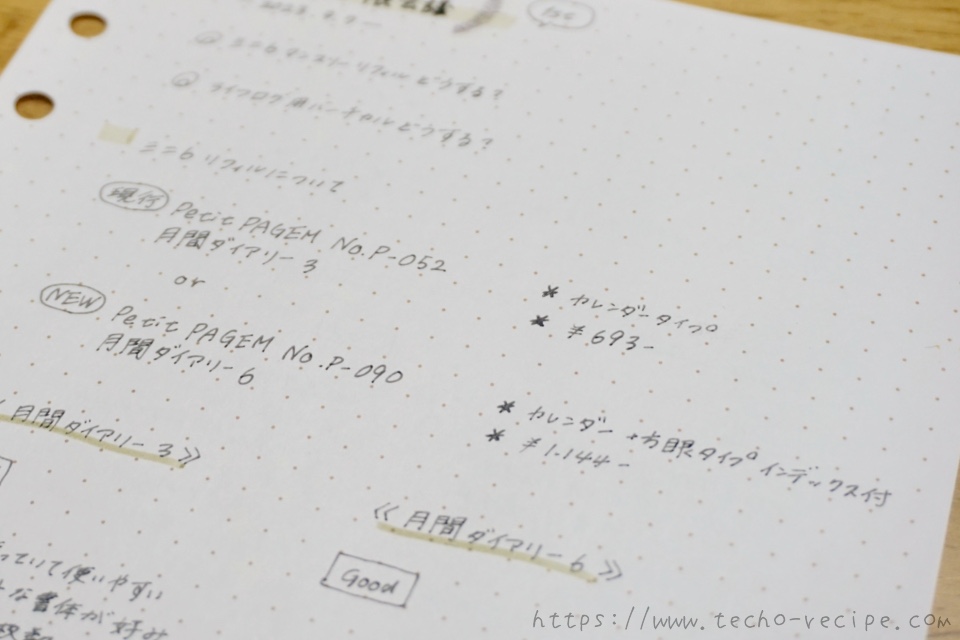 @ ミニ6マンスリーリフィルどうする?
@ ライフログ用バーチカルどうする?
ミニ6リフィルについて
現行 Petit PAGEM No.P-052
月間ダイアリー3
or
NEW Petit PAGEM No.P-090
月間ダイアリー6
* カレンダータイプ
* ¥693-
* カレンダー+方眼タイプ インデックス付
* ¥1.144-
月間ダイアリー3》
《月間ダイアリー6》
Good
っていて使いやすい
な書体が好み
https://www.techo-recipe.com